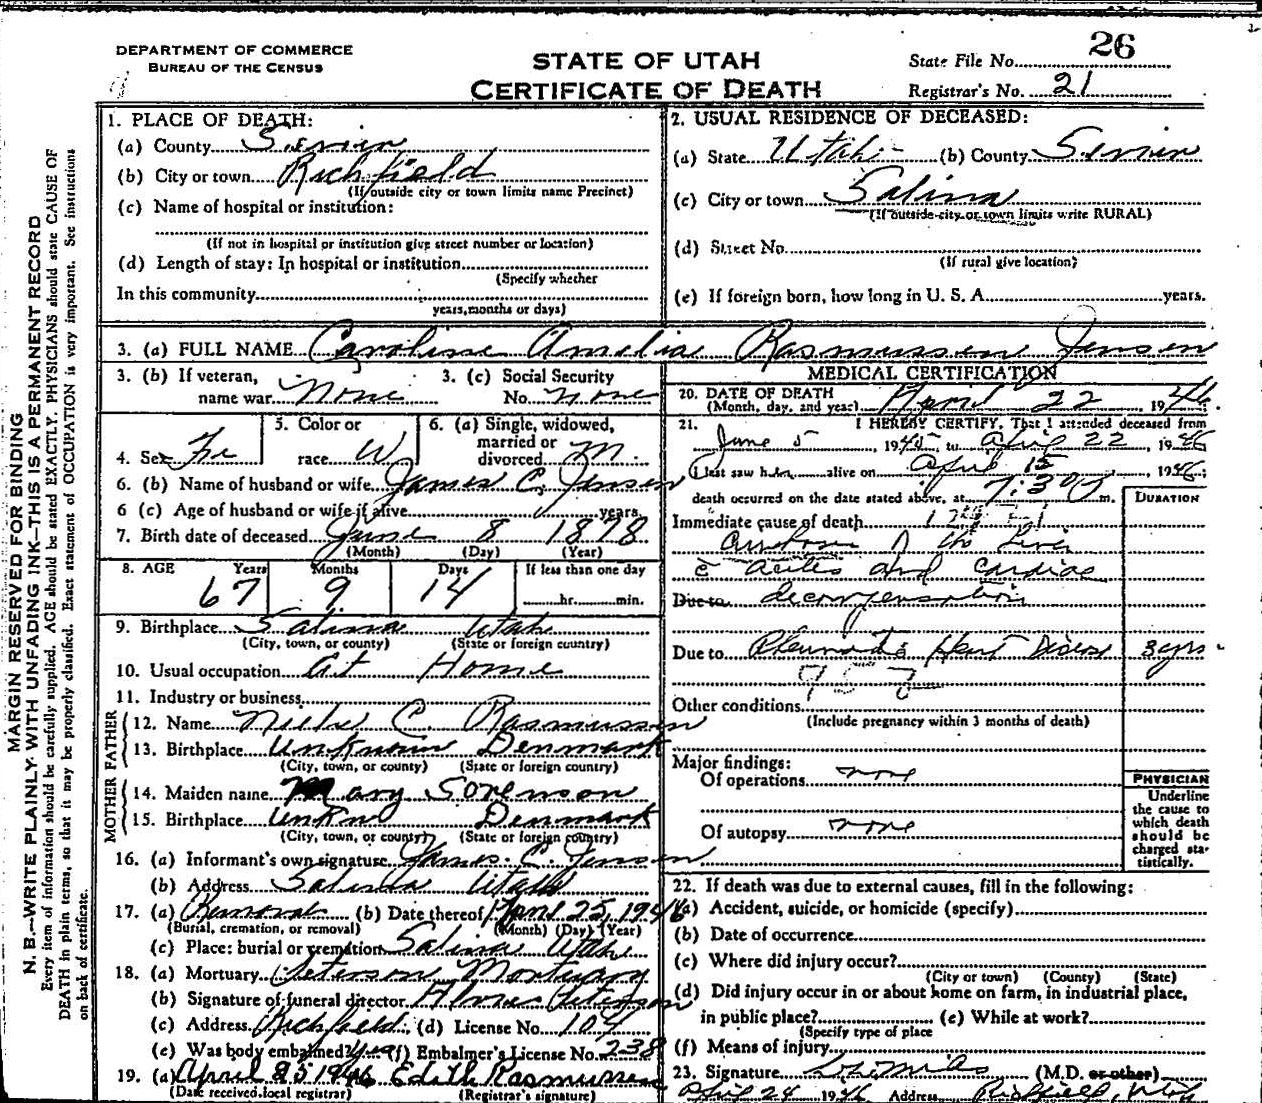 DEPARTMENT OF COMMERCE
BUREAU OF THE CENSUS
STATE OF UTAH
CERTIFICATE OF DEATH
26
State File No.
Registrar's No. 21
MARGIN RESERVED FOR BINDING
N. B.—WRITE PLAINLY WITH UNFADING INK—THIS IS A PERMANENT RECORD
Every item of information should be carefully supplied. AGE should be stated EXACTLY. PHYSICIANS should state CAUSE OF
DEATH in plain terms, so that it may be properly classified. Exact statement of OCCUPATION is very important. See instructions
on back of certificate.
1. PLACE OF DEATH:
(a) County Sevier
(b) City or town Richfield
(If outside city or town limits name Precinct)
(c) Name of hospital or institution:
(If not in hospital or institution give street number or location)
(d) Length of stay: In hospital or institution
(Specify whether
In this community
years, months or days)
2. USUAL RESIDENCE OF DECEASED:
(a) State Utah (b) County Sevier
(c) City or town Salina
(If outside city or town limits write RURAL)
(d) Street No.
(If rural give location)
(e) If foreign born, how long in U. S. A. years.
3. (a) FULL NAME Caroline Amelia Rasmussen Jensen
3. (b) If veteran, name war None
3. (c) Social Security No. None
4. Sex Fe
5. Color or race W
6. (a) Single, widowed, married or divorced M.
6. (b) Name of husband or wife James C. Jensen
6 (c) Age of husband or wife if alive years.
7. Birth date of deceased June 8 1878
(Month) (Day) (Year)
8. AGE Years Months Days If less than one day
67 9 14 hr. min.
9. Birthplace Salina Utah
(City, town, or county) (State or foreign country)
10. Usual occupation At Home
11. Industry or business
FATHER
12. Name Niels C. Rasmussen
13. Birthplace Unknown Denmark
(City, town, or county) (State or foreign country)
MOTHER
14. Maiden name Mary Sorenson
15. Birthplace Unkn Denmark
(City, town, or county) (State or foreign country)
16. (a) Informant's own signature James. C. Jensen
(b) Address Salina Utah
17. (a) Removal (b) Date thereof April 25, 1946
(Burial, cremation, or removal) (Month) (Day) (Year)
(c) Place: burial or cremation Salina Utah
18. (a) Mortuary Peterson Mortuary
(b) Signature of funeral director Peterson
(c) Address Richfield. (d) License No. 107
(e) Was body embalmed? yes (f) Embalmer's License No. 238
19. (a) April 25 1946 Edith Rasmussen
(Date received local registrar) (Registrar's signature)
MEDICAL CERTIFICATION
20. DATE OF DEATH
(Month, day, and year) April 22, 1946.
21. I HEREBY CERTIFY, That I attended deceased from
June 5, 1945 to April 22, 1946
I last saw h alive on April 15 1946;
death occurred on the date stated above, at 7:30 m.
DURATION
Immediate cause of death
Cirrhosis of the Liver
c̄ and Cardiac
Due to decompensation
Due to Rheumatic Heart Disease 3 yrs
Other conditions
(Include pregnancy within 3 months of death)
Major findings:
Of operations none
Of autopsy none
PHYSICIAN
Underline
the cause to
which death
should be
charged sta-
tistically.
22. If death was due to external causes, fill in the following:
(a) Accident, suicide, or homicide (specify)
(b) Date of occurrence
(c) Where did injury occur?
(City or town) (County) (State)
(d) Did injury occur in or about home on farm, in industrial place,
in public place? (e) While at work?
(Specify type of place
(f) Means of injury
23. Signature (M.D. or other)
April 24 1946 Address Richfield, Utah